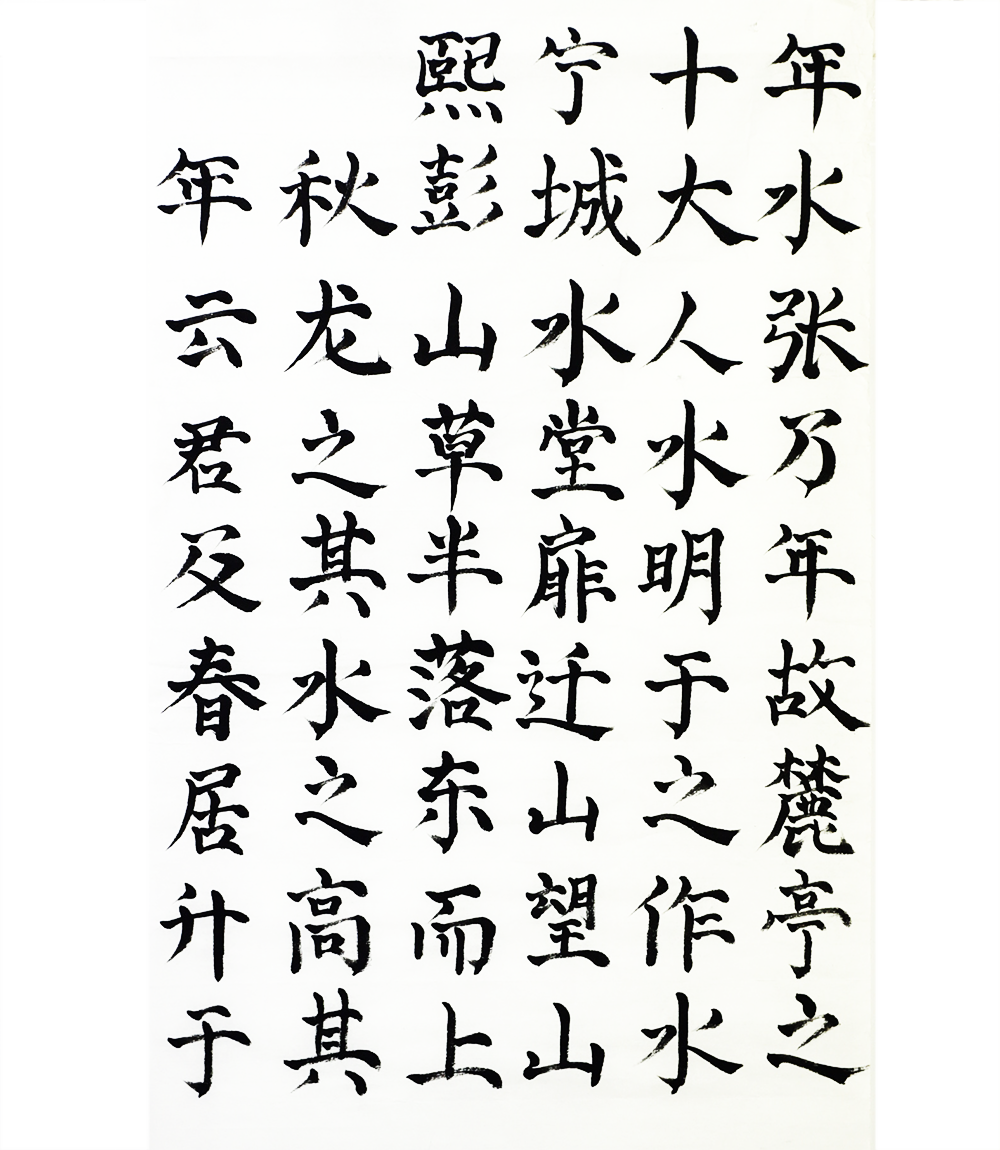 熙宁十年
年秋彭城大水
云龙山水人张
君之草堂水乃
及其半扉明年
春水落迁于故
居之东山之麓
升高而望作亭
于其上山水之